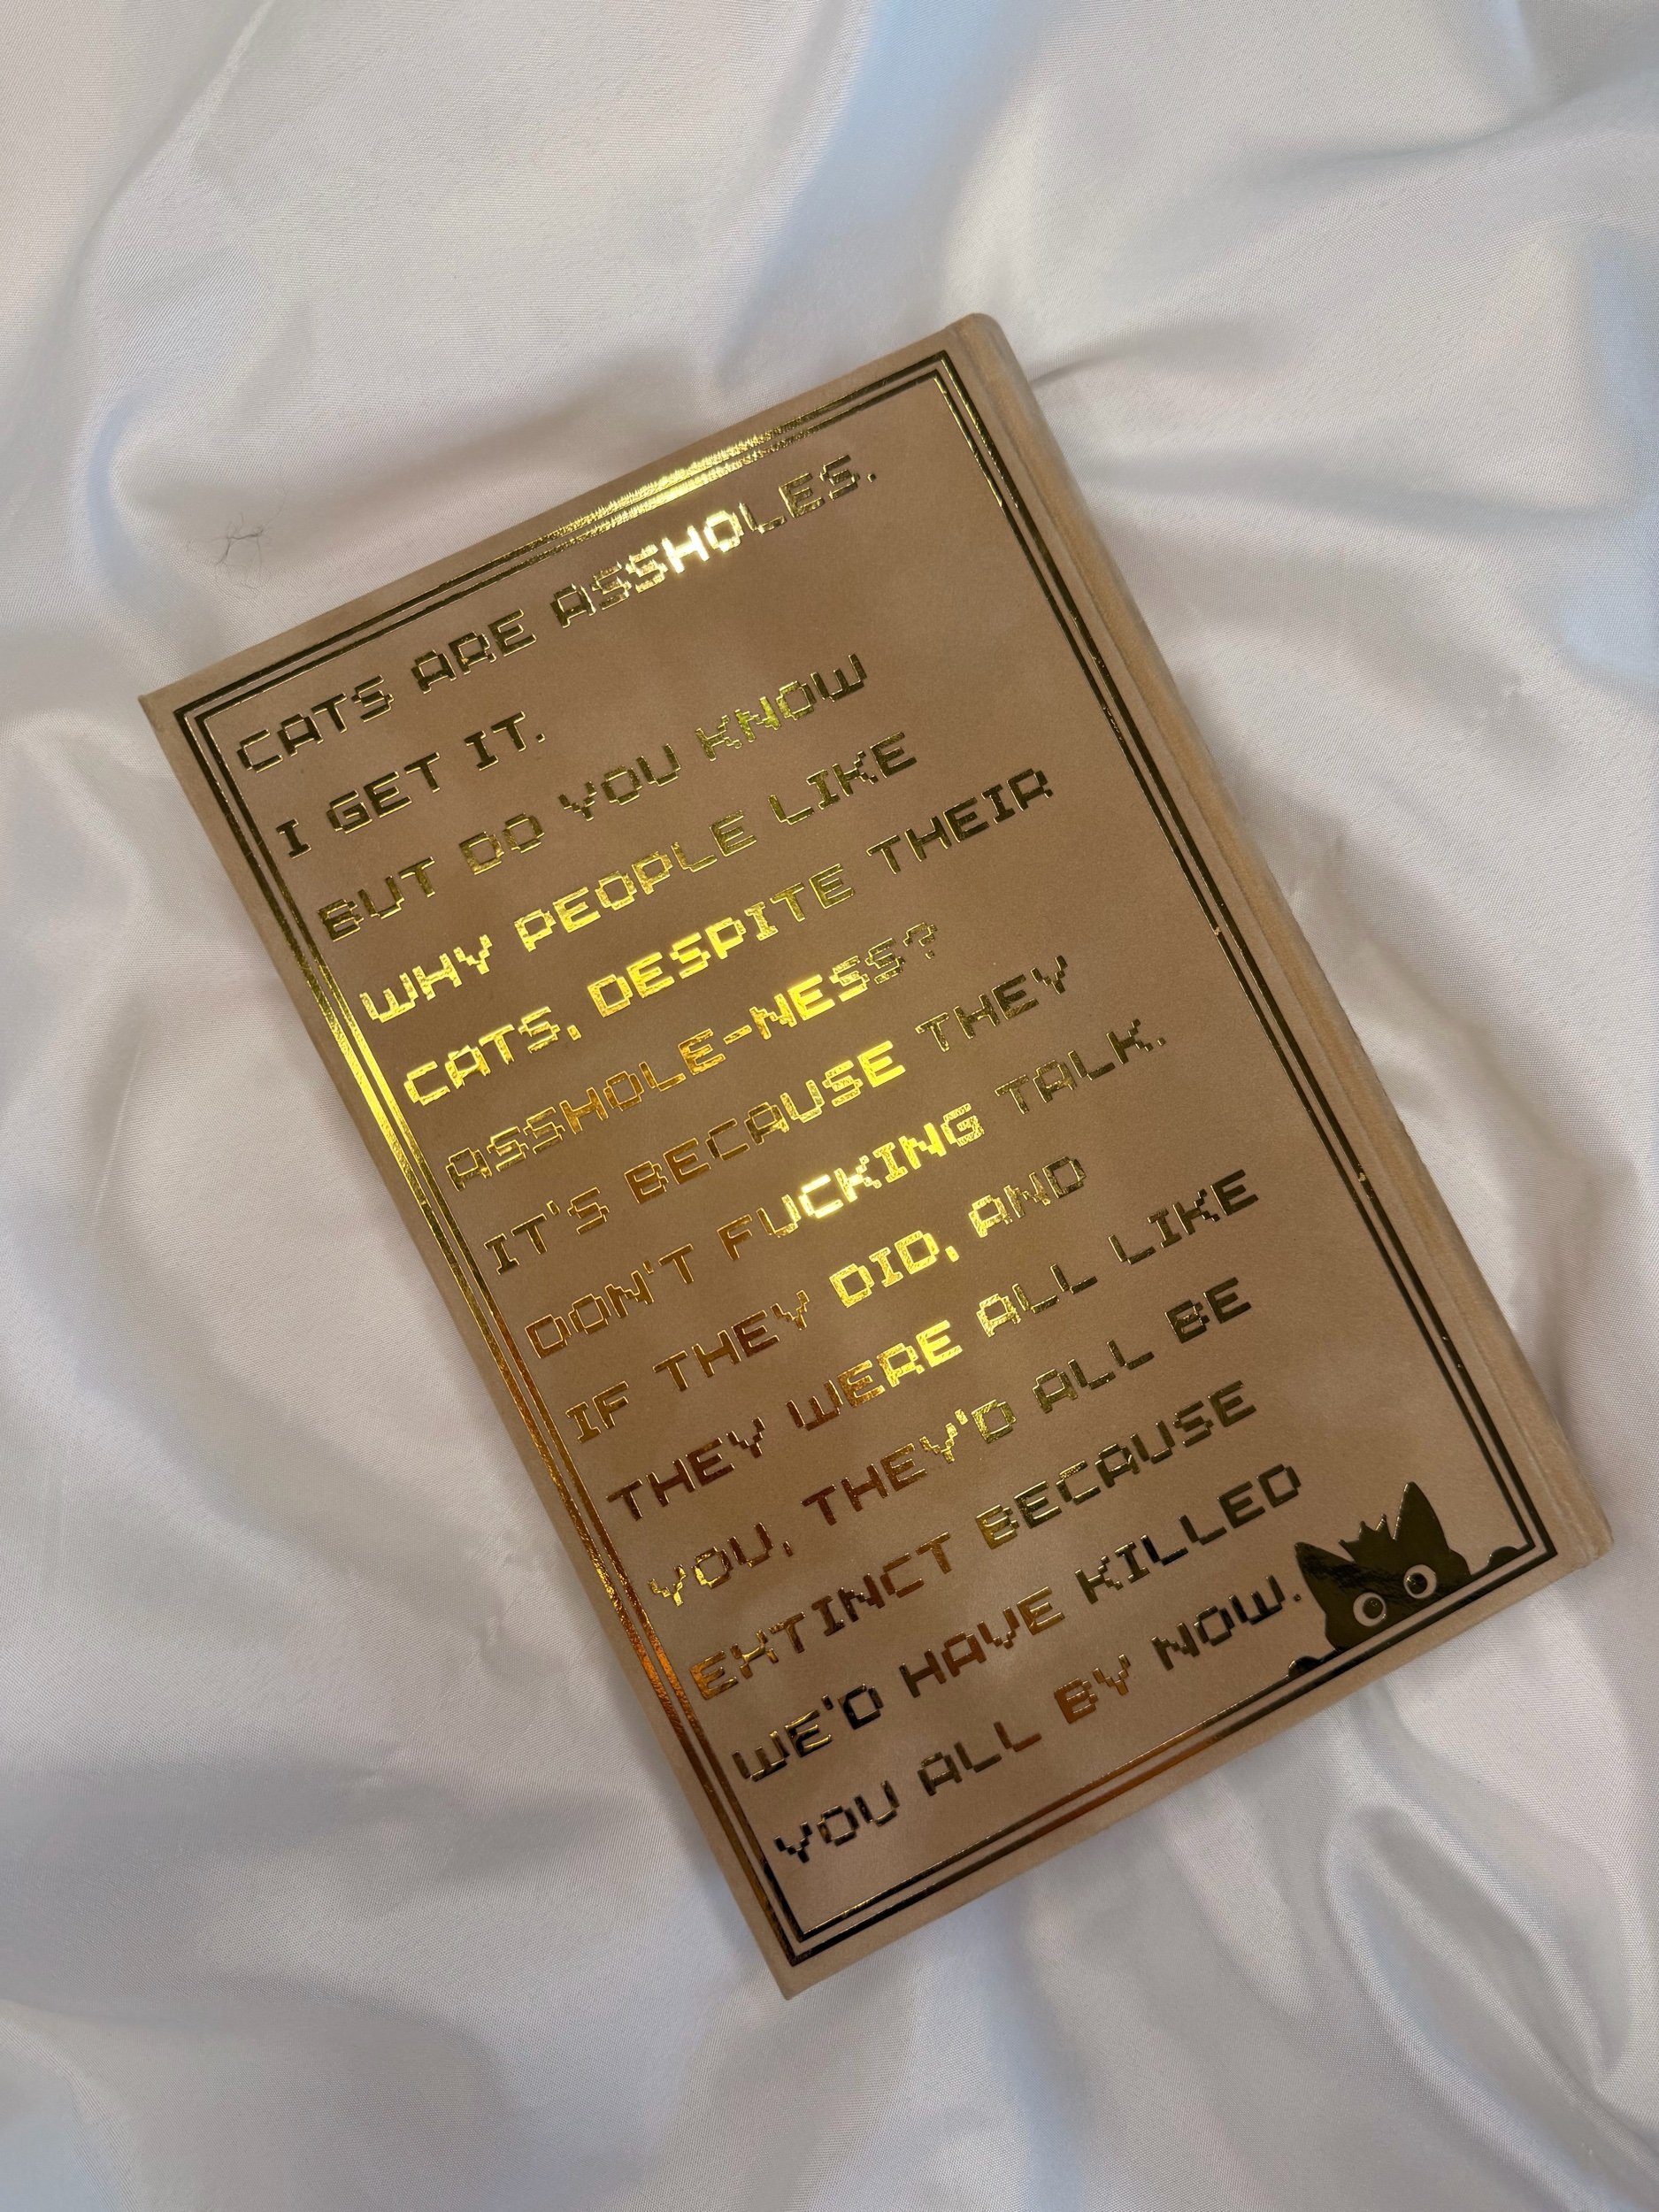 CATS ARE ASSHOLES.
I GET IT.
BUT DO YOU KNOW
WHY PEOPLE LIKE
CATS, DESPITE THEIR
ASSHOLE-NESS?
IT'S BECAUSE THEY
DON'T FUCKING TALK.
IF THEY DID, AND
THEY WERE ALL LIKE
YOU, THEY'D ALL BE
EXTINCT BECAUSE
WE'D HAVE KILLED
YOU ALL BY NOW.